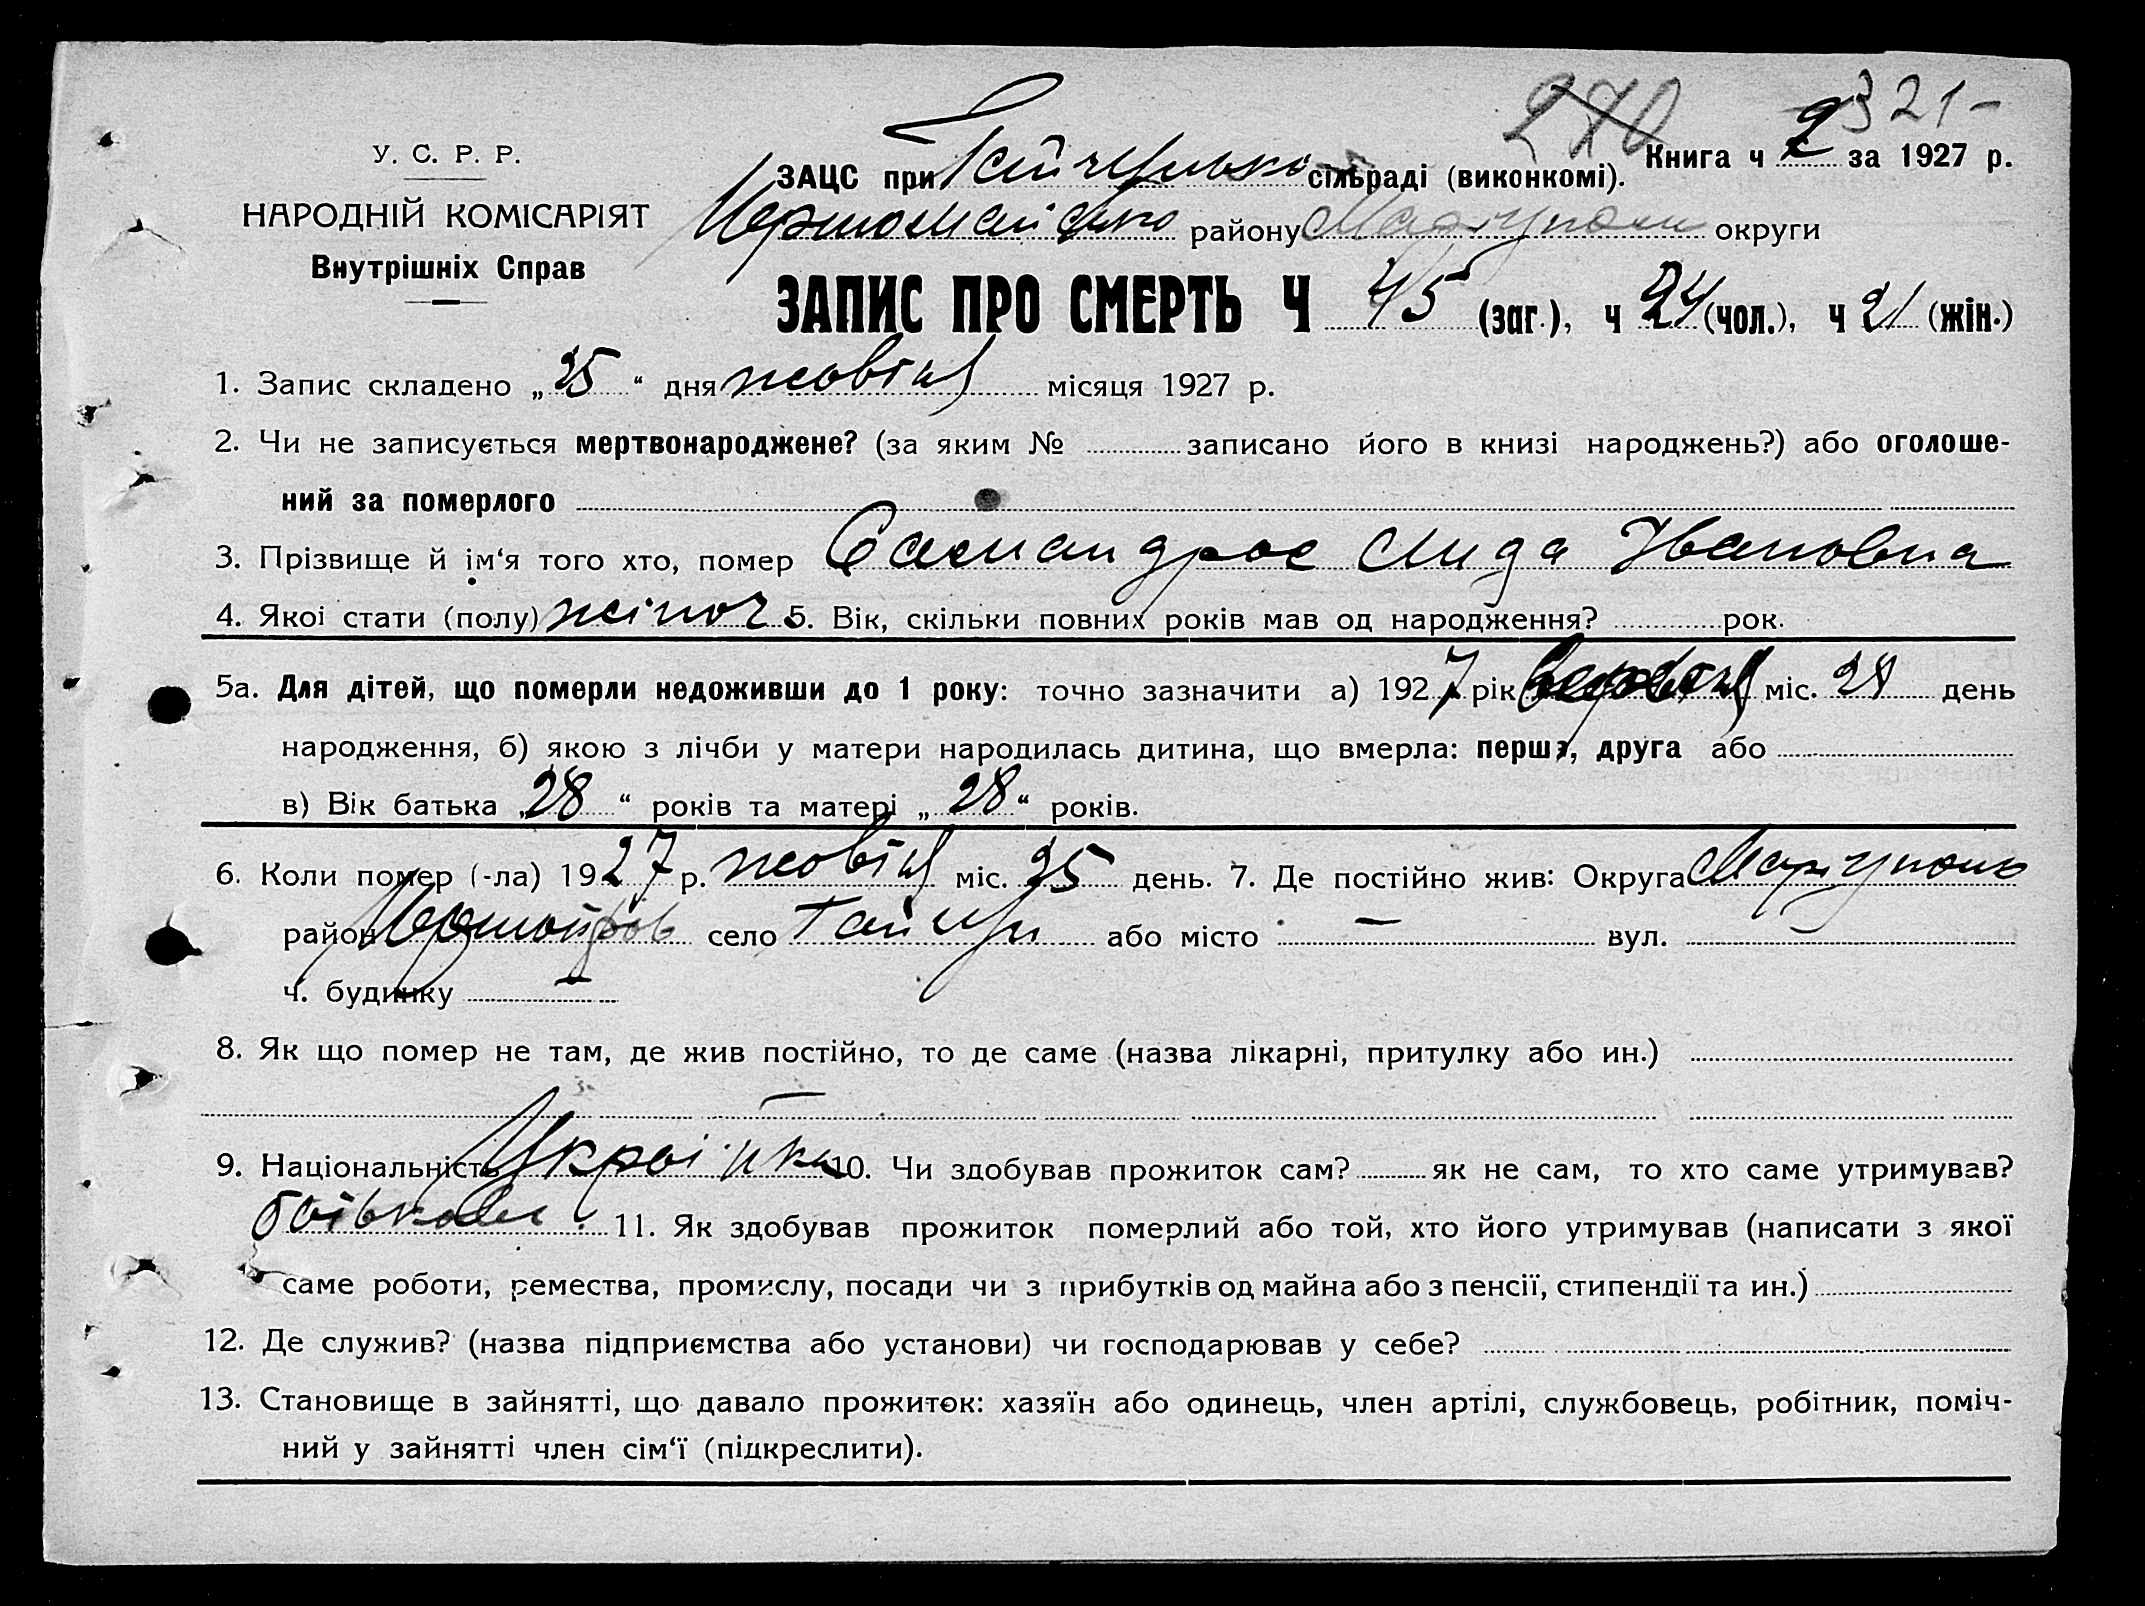 270 321-
У. С. Р. Р.
НАРОДНІЙ КОМІСАРІЯТ
Внутрішніх Справ
Книга ч 2 за 1927 р.
ЗАЦС при сільраді (виконкомі).
Першомайсько району Маріуполи округи
ЗАПИС ПРО СМЕРТЬ Ч 45 (заг.), ч 24 (чол.), ч 21 (жін.)
1. Запис складено „25“ дня жовтня місяця 1927 р.
2. Чи не записується мертвонароджене? (за яким № записано його в книзі народжень?) або оголоше-
ний за померлого
3. Прізвище й ім‘я того хто, помер Лида Ивановна
4. Якої стати (полу) жіноч 5. Вік, скільки повних років мав од народження? рок.
5а. Для дітей, що померли недоживши до 1 року: точно зазначити а) 1927 рік міс. 28 день
народження, б) якою з лічби у матери народилась дитина, що вмерла: перша, друга або
в) Вік батька „28“ років та матері „28“ років.
6. Коли помер (-ла) 1927 р. жовтня міс. 25 день. 7. Де постійно жив: Округа Маріуполь
район село Гайчул або місто — вул. —
ч. будинку —
8. Як що помер не там, де жив постійно, то де саме (назва лікарні, притулку або ин.)
—
9. Національність 10. Чи здобував прожиток сам? як не сам, то хто саме утримував?
батьком 11. Як здобував прожиток померлий або той, хто його утримував (написати з якої
саме роботи, ремества, промислу, посади чи з прибутків од майна або з пенсії, стипендії та ин.)
12. Де служив? (назва підприємства або установи) чи господарював у себе?
13. Становище в зайнятті, що давало прожиток: хазяїн або одинець, член артілі, службовець, робітник, поміч-
ний у зайнятті член сім‘ї (підкреслити).